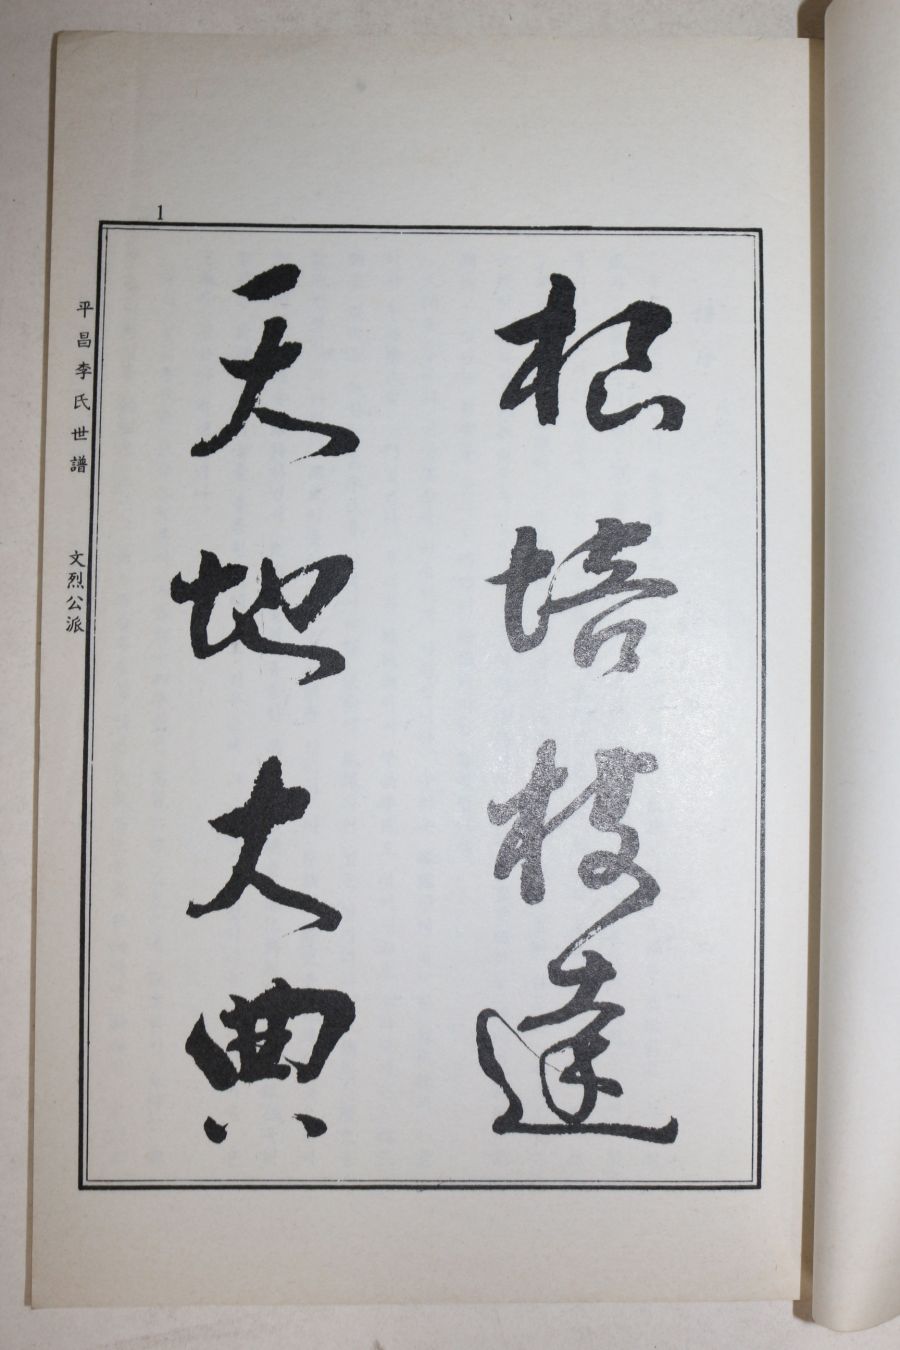 根培枝達
天地大典
1
平昌李氏世譜 文烈公派